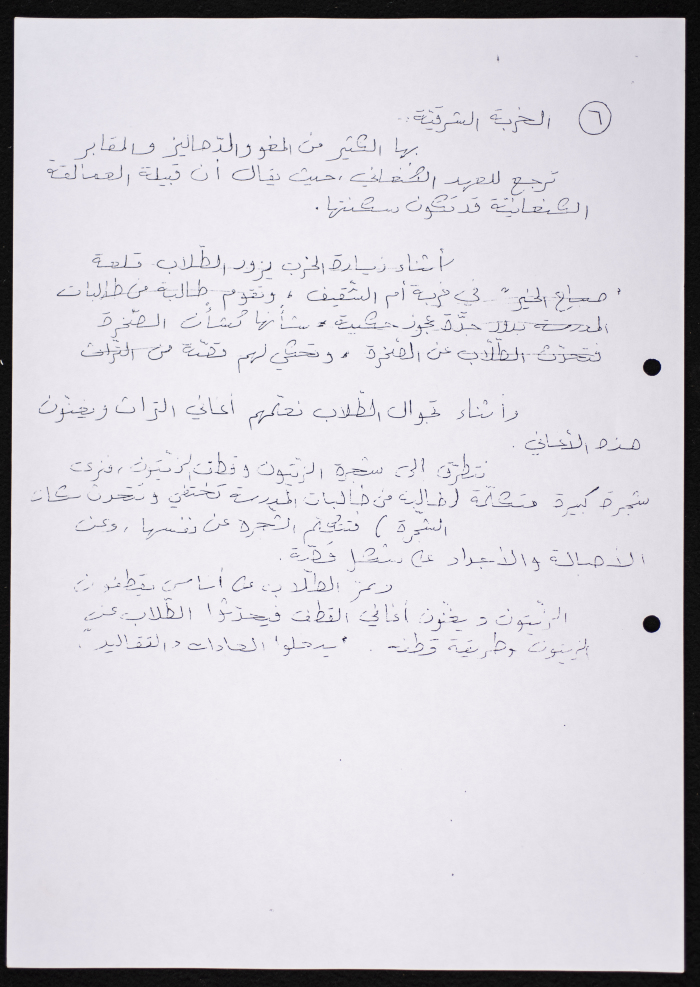 ٦ الخربة الشرقيّة..
بها الكثير من المغر والدّهاليز والمقابر
ترجع للعهد الكنعاني، حيث يقال أن قبيلة العمالقة
الكنعانيّة قد تكون سكنتها.
أثناء زيارة الخرب يزور الطّلاب قلعة
"صباح الخير" في خربة أم الشّقيف، وتقوم طالبة من طالبات
المدرسة بدور جدّة عجوز شأنها كشأن الصّخرة
فتحدّث الطّلّاب عن الصّخرة، وتحكي لهم قصّة من التراث
وأثناء تجوال الطّلاب نعلّمهم أغاني التراث ويغنّون
هذه الأغاني.
نتطرّق الى شجرة الزّيتون وقطف الزيتون، فنرى
شجرة كبيرة متكلّمة (طالبة من طالبات المدرسة تختفي وتتحدث مكان
الشجرة) فتتكلّم الشجرة عن نفسها، وعن
الأصالة والأجداد على شكل قصّة.
ويمرّ الطّلاب على أناس يقطفون
الزّيتون ويغنّون أغاني القطف فيحدّثوا الطّلاب عن
الزيتون وطريقة قطفه. "يدخلوا العادات والتقاليد".